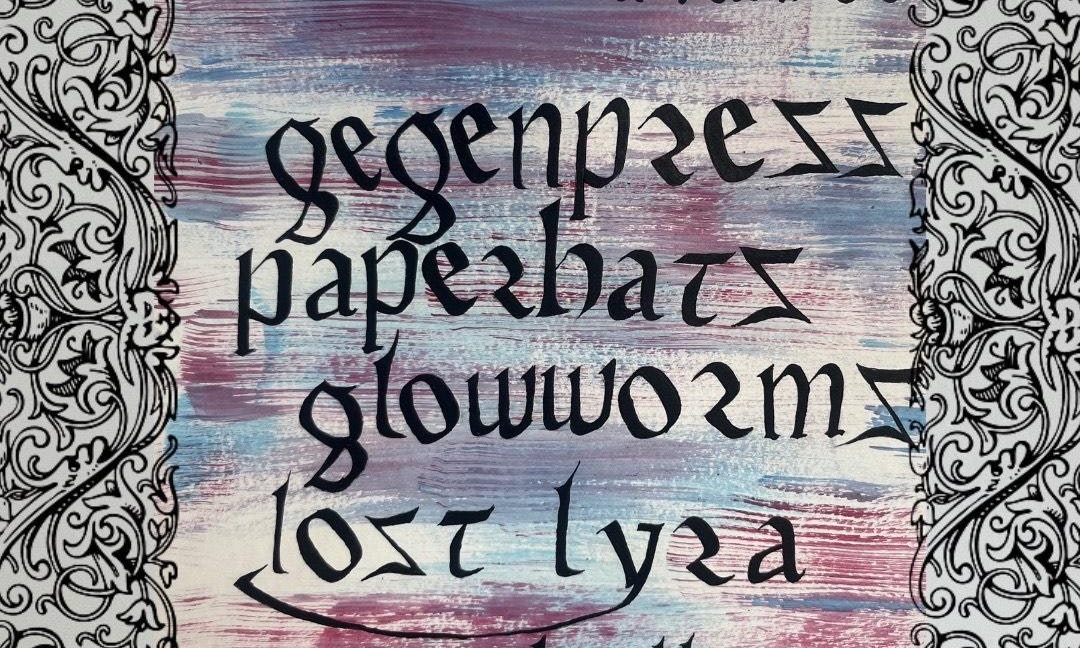 gegenpress
paperhats
glowworms
lost lyra